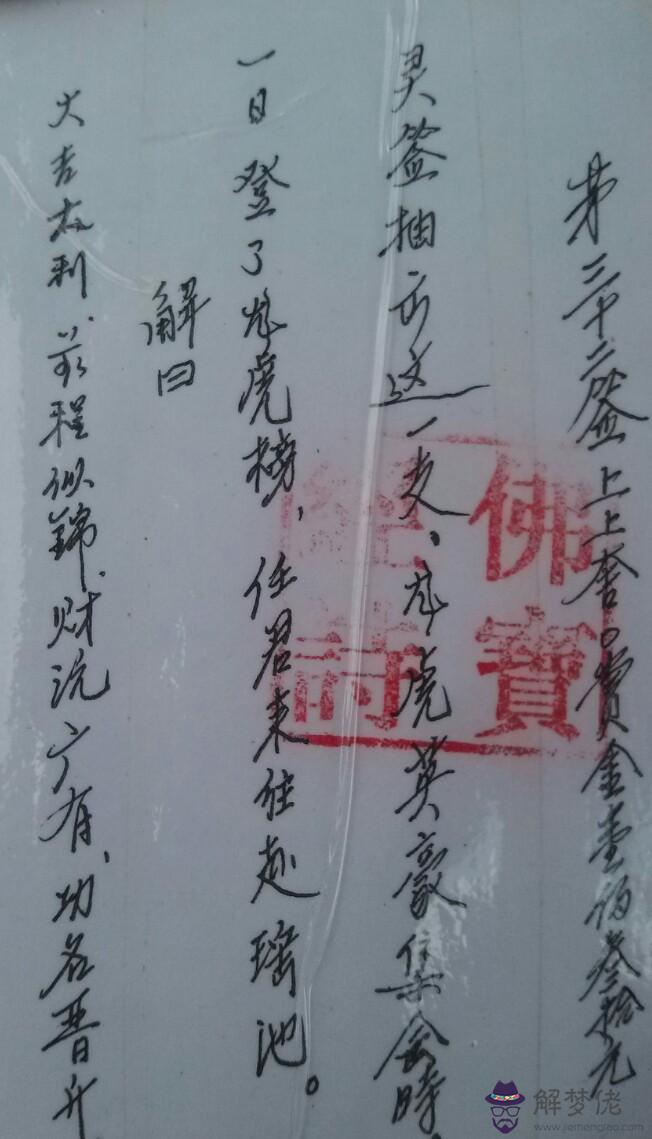 第三十二签上上奎。赏金壹佰叁拾元
灵签抽出这一支、龙虎英豪集会時.
一日登了龙虎榜，任君来往赴瑶池。
解曰
大吉大利、前程似錦、财沅广有、功名晋升
佛寳
詩
解梦佬
www.jiemenglao.com